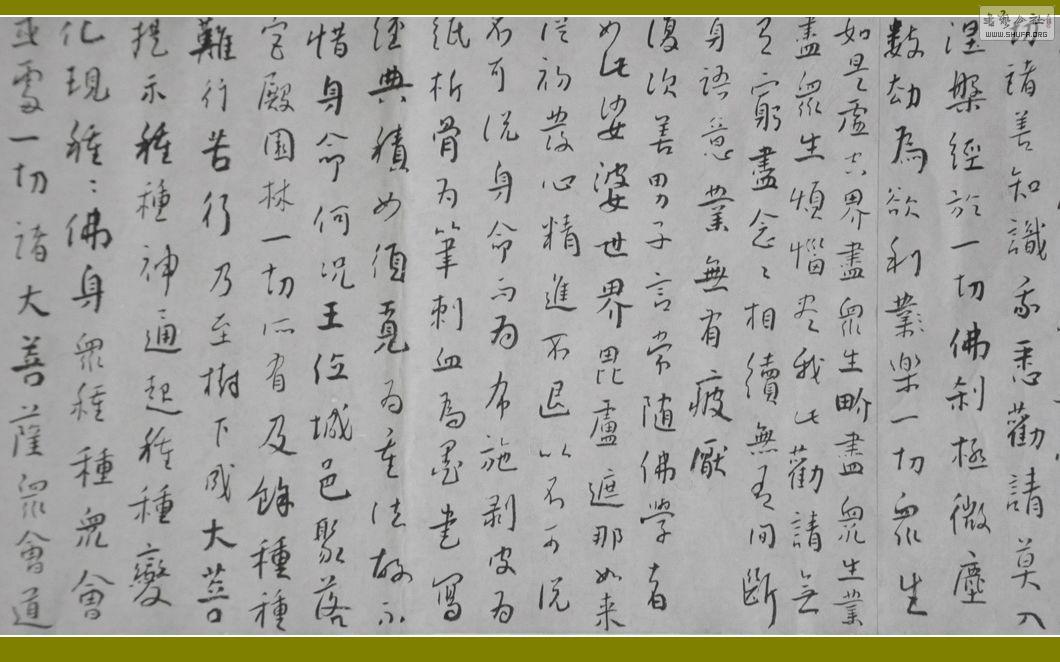 諸善知識我悉勸請莫入
涅槃經於一切佛剎極微塵
數劫為欲利業樂一切眾生
如是虛空界盡眾生界盡眾生業
盡眾生煩惱盡我此勸請無
有窮盡念々相續無有間斷
身語意業無有疲厭
復次善男子言常隨佛學者
如此娑婆世界毘盧遮那如來
從初發心精進不退以不可說
不可說身命而為布施剥皮為
紙析骨為筆刺血為墨書寫
經典積如須彌為重法故不
惜身命何況王位城邑聚落
宮殿園林一切所有及餘種種
難行苦行乃至樹下成大菩
提示種種神通起種種變
化現種々佛身眾種種眾會
一切諸大菩薩眾會道
書藝公社
WWW.SHUFA.ORG